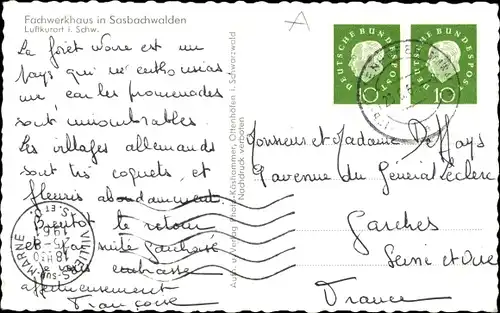 Fachwerkhaus in Sasbachwalden
Luftkurort i. Schw.
La forêt noire est un
pays qui m'enthousias
me car les promenades
sont innombrables.
Les villages allemands
sont très coquets, et
fleuris abondamment.
Bientôt le retour
et
Je vous embrasse
affectueusement
Françoise
Auto. u. Verlag Photo-Köshammer, Ottenhöfen i. Schwarzwald
Nachdruck verboten
DEUTSCHE BUNDESPOST
10
DEUTSCHE BUNDESPOST
10
Monsieur et Madame De Hays
avenue du Général Leclerc
Garches
Seine et Oise
France
VILLIERS-SUR-MARNE
S. ET O.
18H30
1961